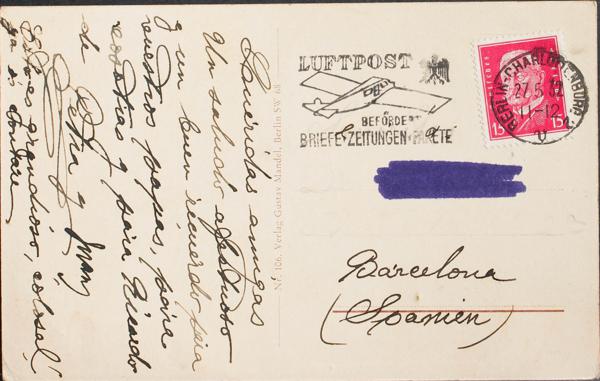 Queridas amigas
Un saludo afectuoso
y un buen recuerdo para
vuestros papas, para
vosotras y para Ricardo
de Petra y Juan
Esto es grandioso, colosal,
ya os contare
Nr. 106. Verlag Gustav Mandel, Berlin SW 68
LUFTPOST
BEFÖRDERT
BRIEFE-ZEITUNGEN-PAKETE
BERLIN-CHARLOTTENBURG 2
27.5.32
11-12
15 15
Barcelona
(Spanien)